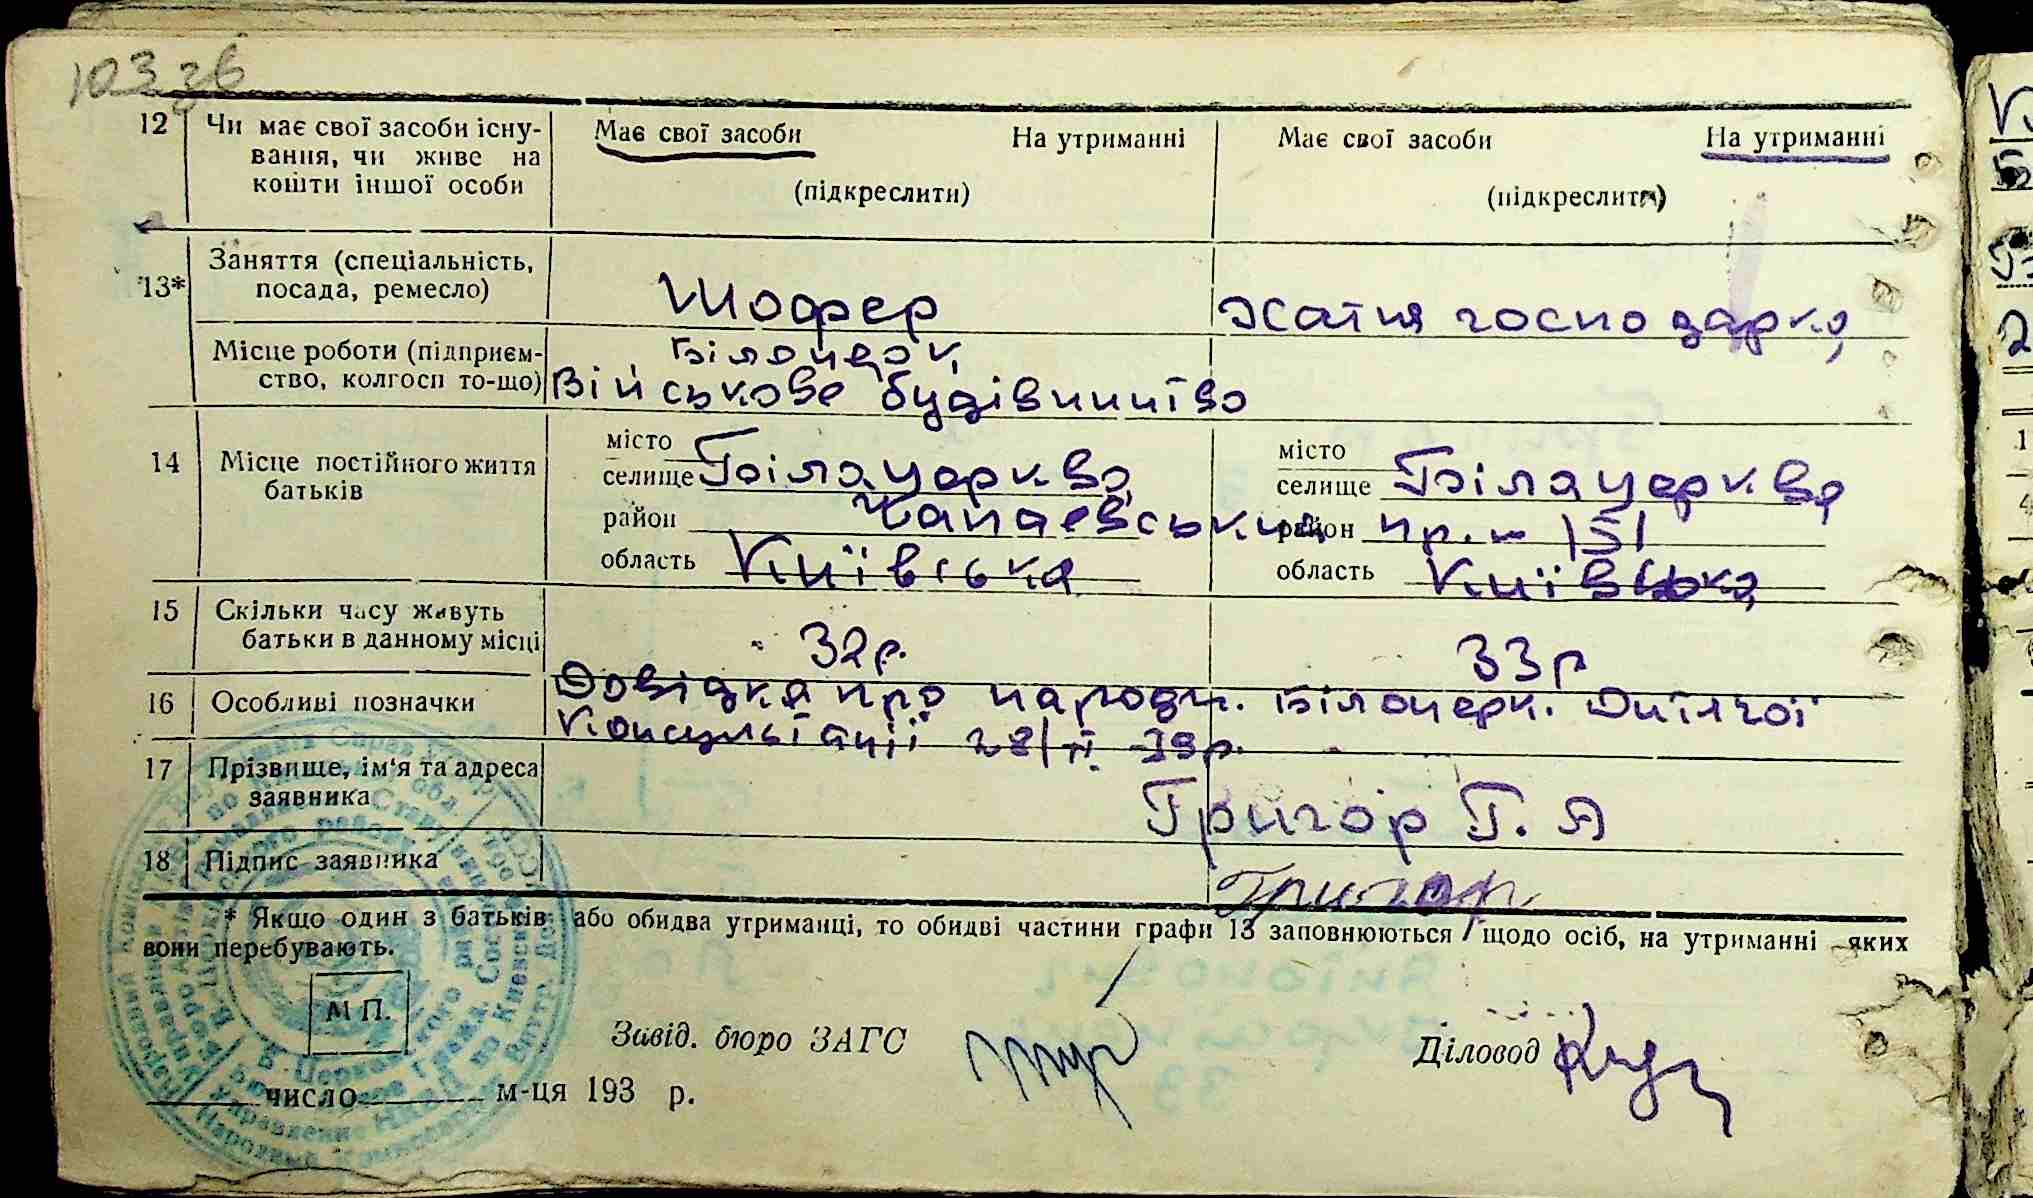 103 зв
12 Чи має свої засоби існу- Має свої засоби На утриманні Має свої засоби На утриманні
вання, чи живе на
кошти іншої особи (підкреслити) (підкреслити)
13* Заняття (спеціальність,
посада, ремесло) Шофер Хатня господарка
Місце роботи (підприєм- Білоцерк.
ство, колгосп то-що) Військове будівництво
14 Місце постійного життя місто місто
батьків селище Біла церква селище Біла церква
район Чапаевський район пр. 151
область Київська область Київська
15 Скільки часу живуть
батьки в данному місці 32р. 33р
16 Особливі позначки Довідка про народж. Білоцерк. Дитячої
Консультації 28/II 39р.
17 Прізвище, ім'я та адреса
заявника Григор Г. Я
18 Підпис заявника Григор
* Якщо один з батьків або обидва утриманці, то обидві частини графи 13 заповнюються щодо осіб, на утриманні яких
вони перебувають.
М П.
Завід. бюро ЗАГС Діловод
число м-ця 193 р.